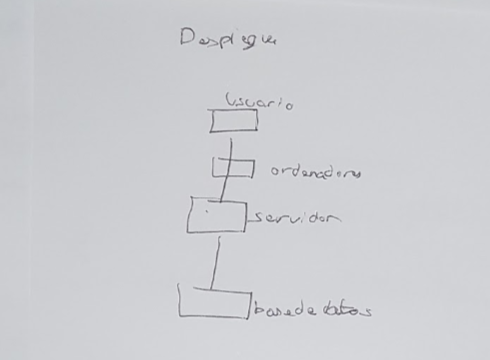 Despliegue
usuario
ordenadores
servidor
base de datos